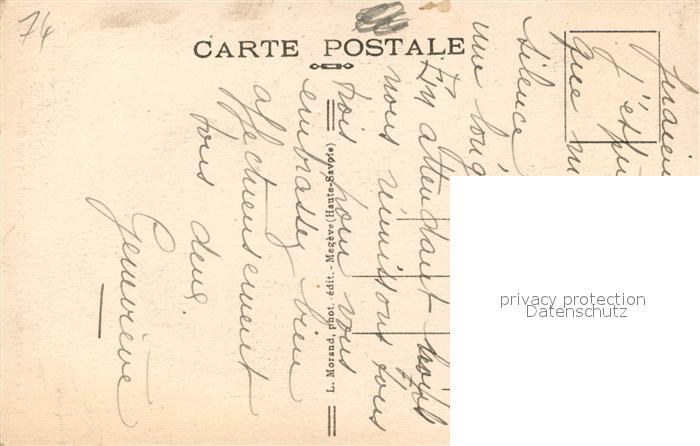 74
CARTE POSTALE
L. Morand, phot.-édit. - Megève (Haute-Savoie)
J'esp
que n
silence
une long
En attendant
nous réunissons tous
trois pour vous
embrasser bien
affectueusement
tous deux.
Geneviève
privacy protection
Datenschutz